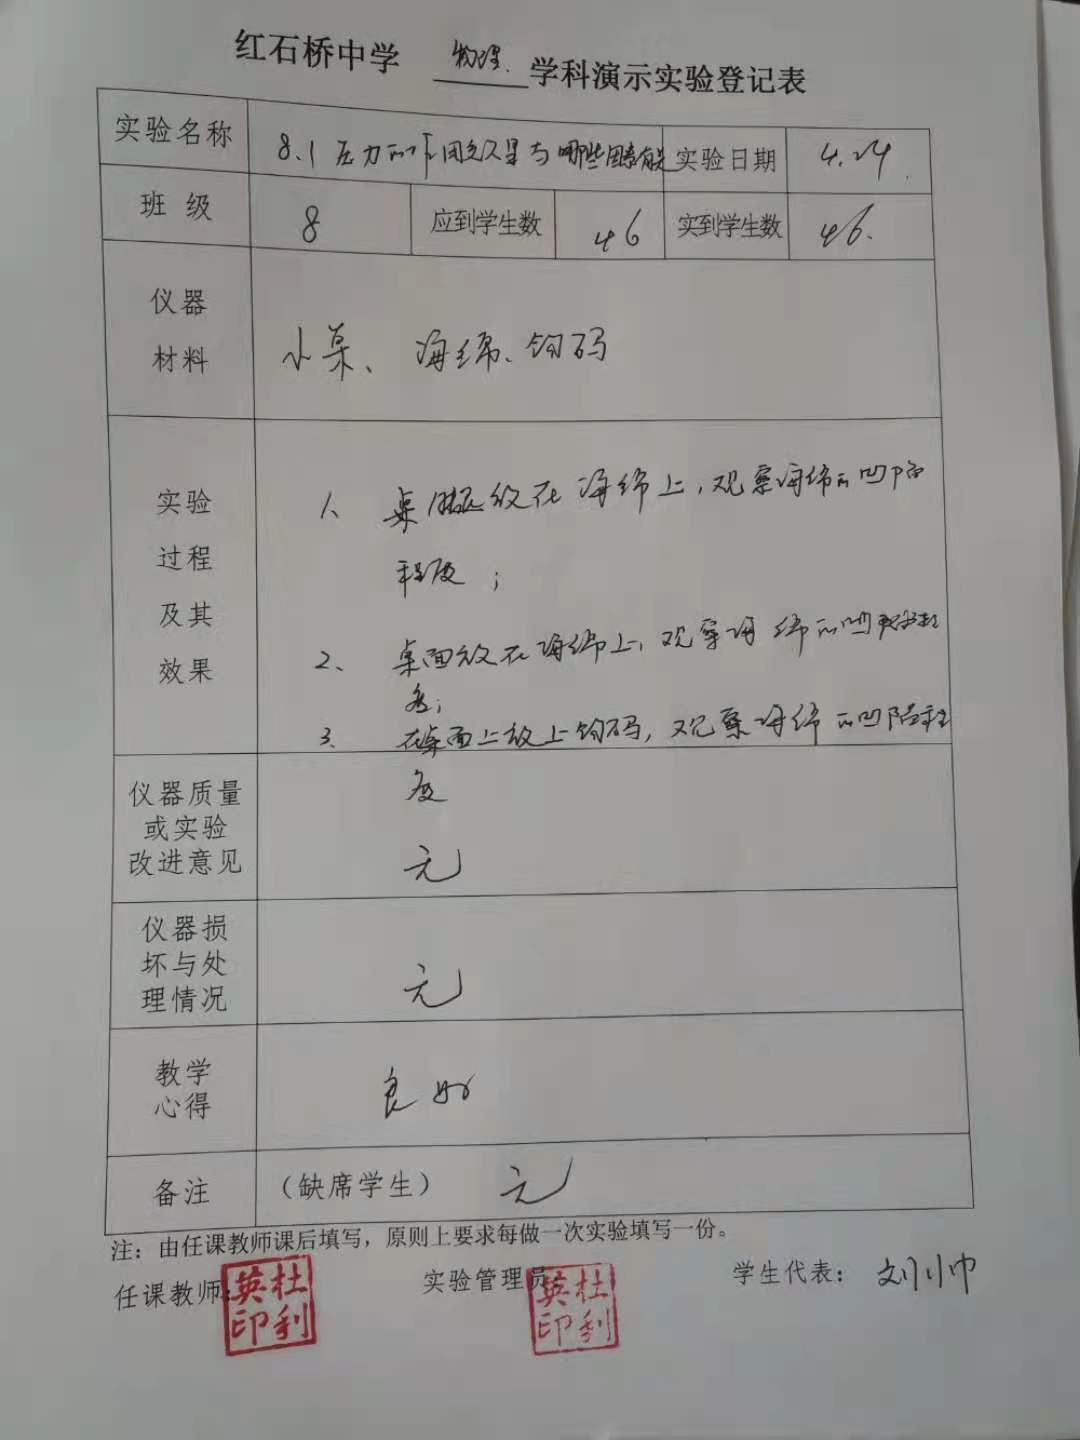 红石桥中学 物理 学科演示实验登记表
实验名称 8.1 压力的作用效果与哪些因素有关 实验日期 4.24
班 级 8 应到学生数 46 实到学生数 46.
仪器
材料
小桌、海绵、钩码
实验
过程
及其
效果
1、桌腿放在海绵上，观察海绵的凹陷
程度；
2、桌面放在海绵上，观察海绵的凹陷程
度；
3、在桌面上放上钩码，观察海绵的凹陷程
度
仪器质量
或实验
改进意见
无
仪器损
坏与处
理情况
无
教学
心得
良好
备注 （缺席学生） 无
注：由任课教师课后填写，原则上要求每做一次实验填写一份。
任课教师： 杜利英印 实验管理员： 杜利英印 学生代表： 刘小帅